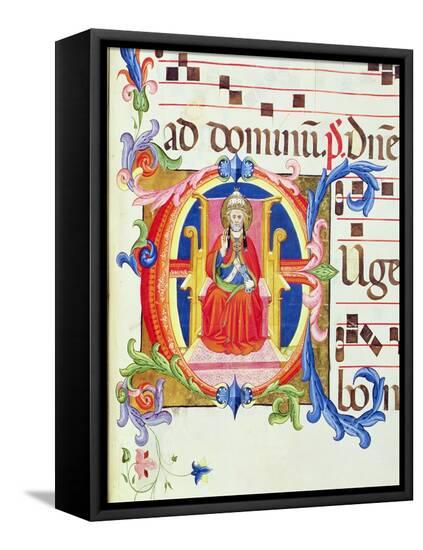 ad dominū. p̄s. Dn̄e
EUge
bon